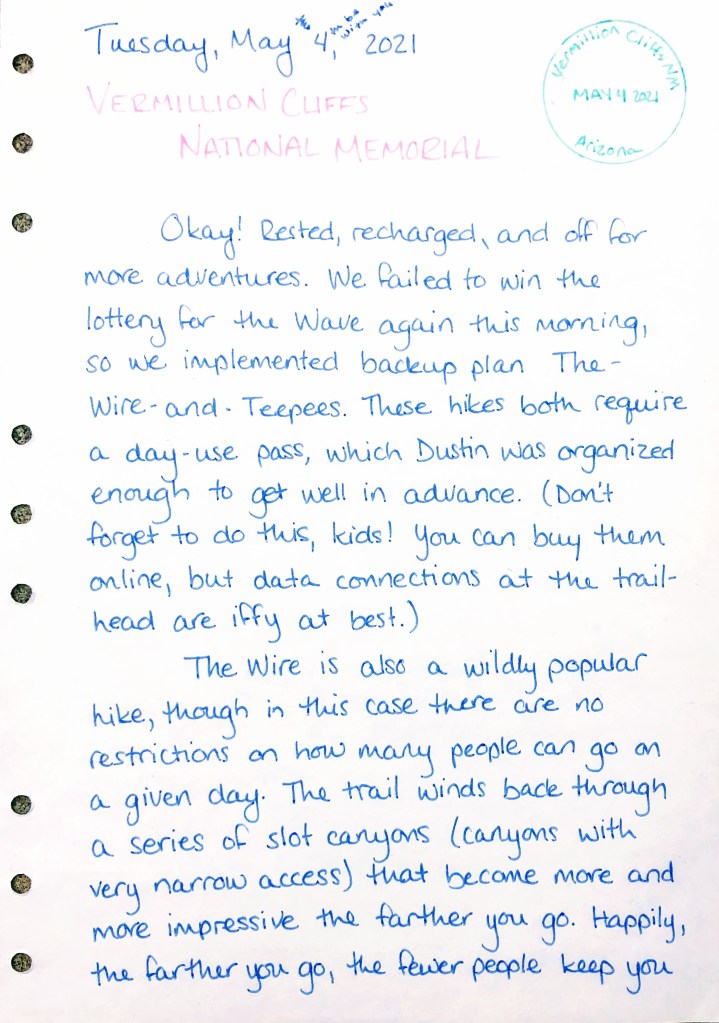 Tuesday, May the 4th, be with you 2021
Vermillion Cliffs NM
MAY 4 2021
Arizona
VERMILLION CLIFFS
NATIONAL MEMORIAL
Okay! Rested, recharged, and off for
more adventures. We failed to win the
lottery for the Wave again this morning,
so we implemented backup plan The-
Wire-and-Teepees. These hikes both require
a day-use pass, which Dustin was organized
enough to get well in advance. (Don't
forget to do this, kids! You can buy them
online, but data connections at the trail-
head are iffy at best.)
The Wire is also a wildly popular
hike, though in this case there are no
restrictions on how many people can go on
a given day. The trail winds back through
a series of slot canyons (canyons with
very narrow access) that become more and
more impressive the farther you go. Happily,
the farther you go, the fewer people keep you